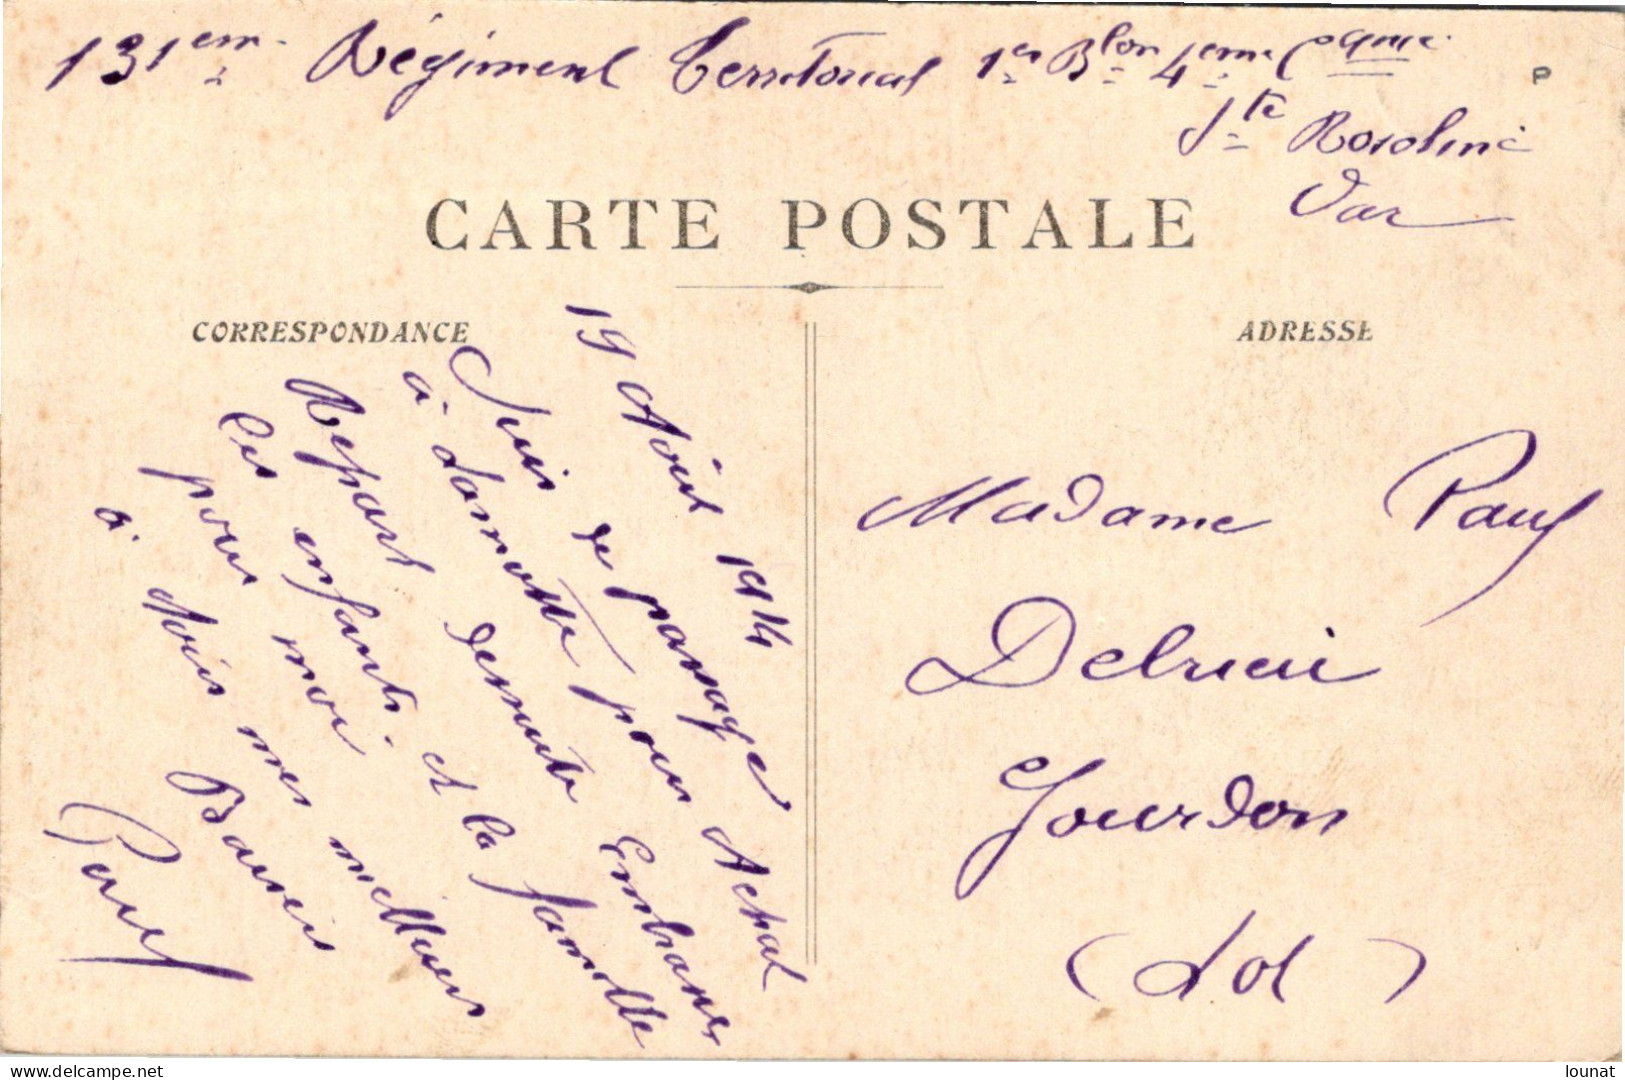 131em. Régiment Territorial 1er Blon 4eme Cgnie
P
Ste Rosoline
Var
CARTE POSTALE
CORRESPONDANCE
ADRESSE
19 Août 1914
Suis de passage
à Lamotte pour Achat
Repart de suite Embrasses
les enfants et la famille
pour moi.
à Toi mes meilleurs
Baisers
Paul
Madame Paul
Delrieu
Gourdon
(Lot)
delcampe.net
lounat